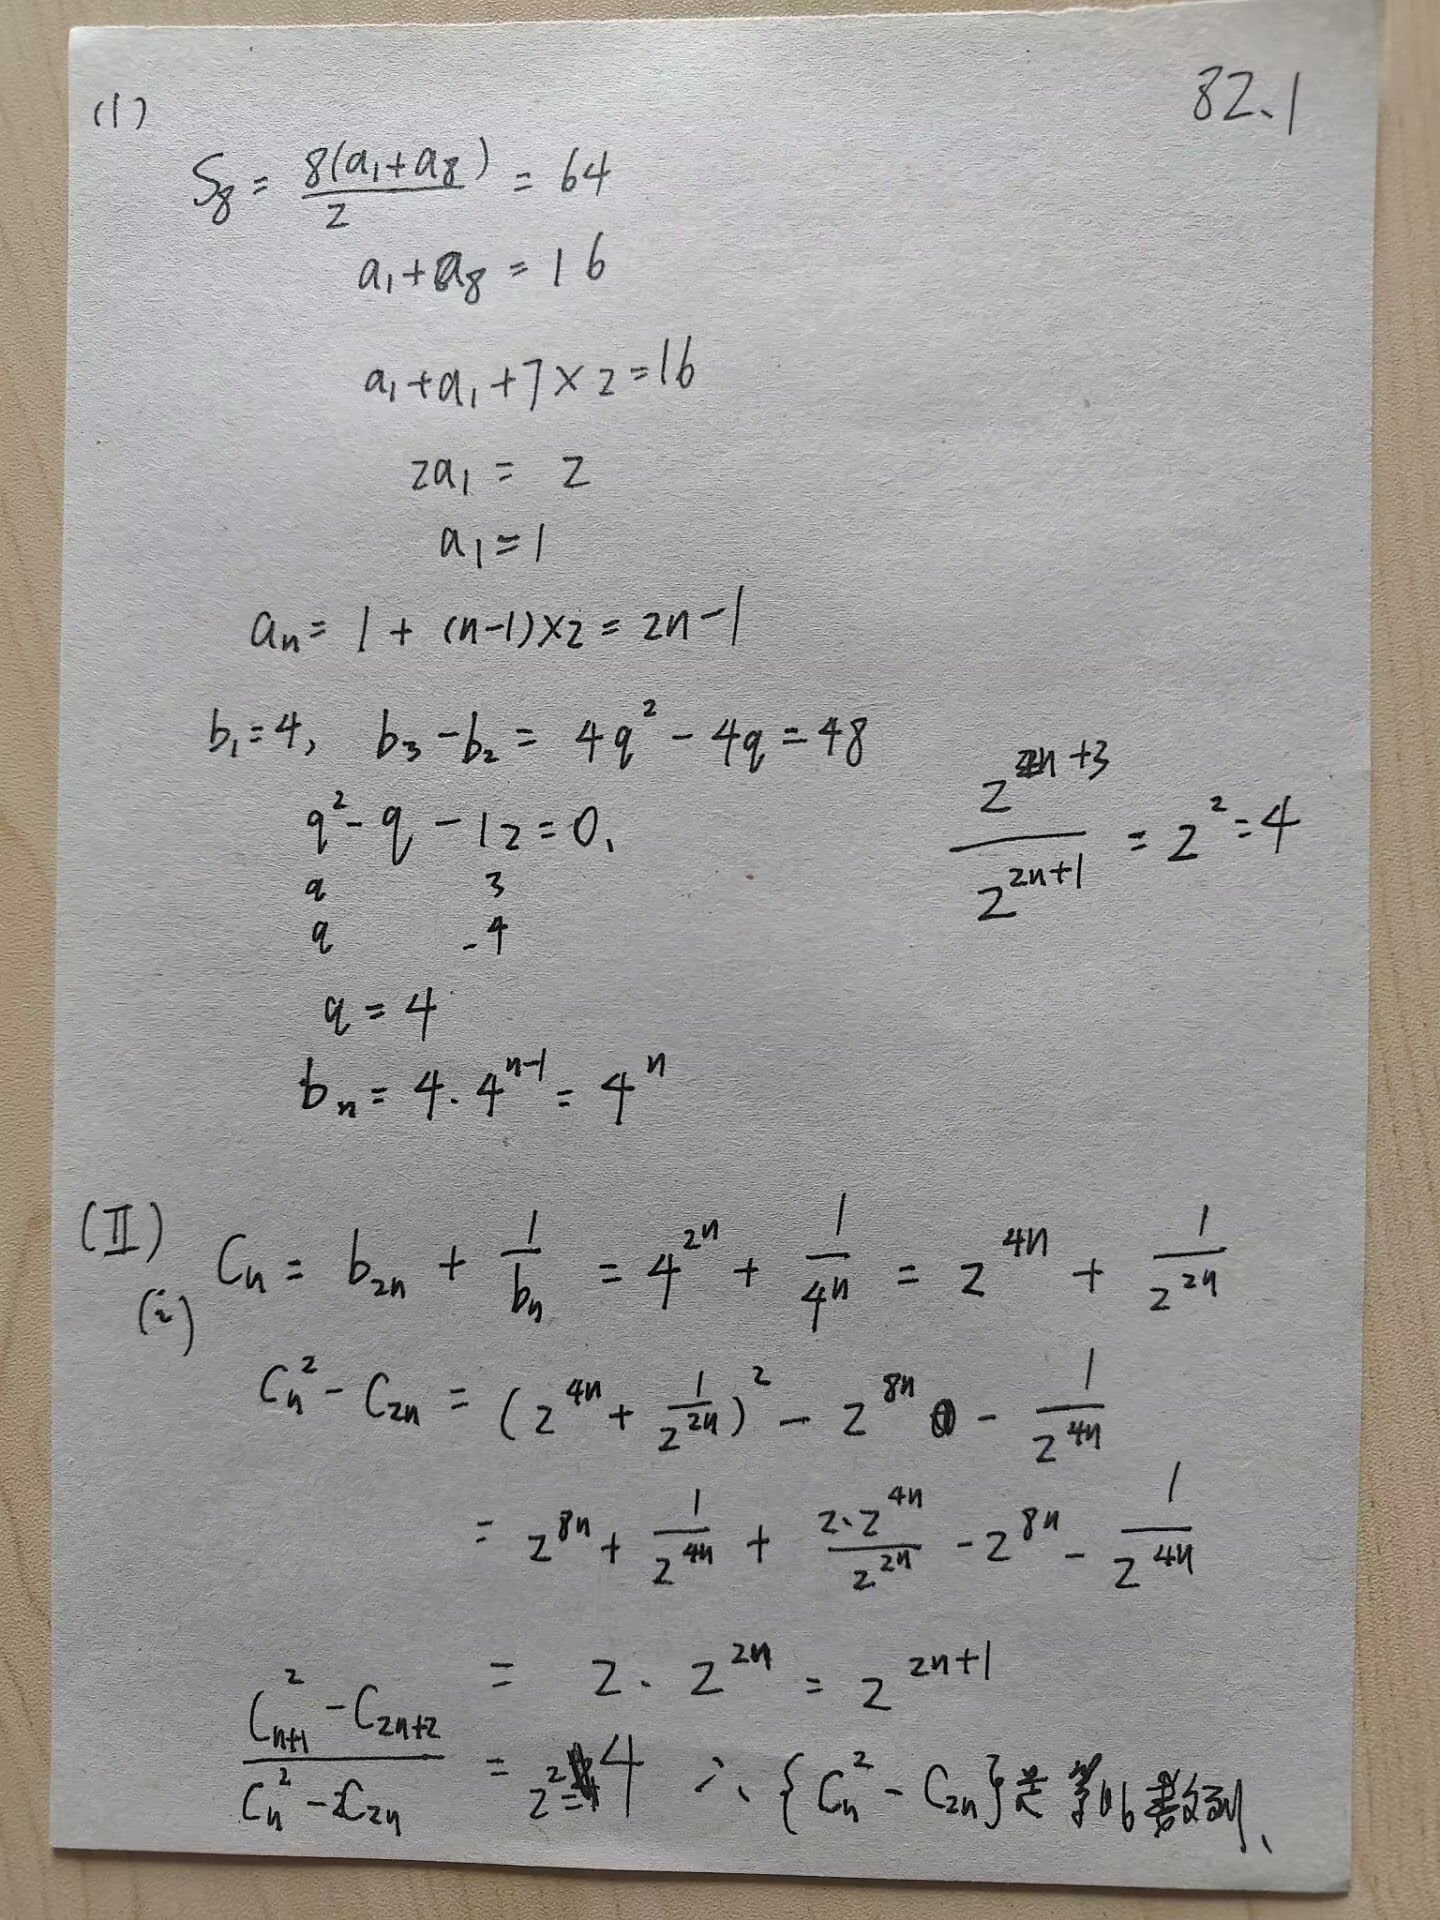 82.1
(1)
S₈ = 8(a₁+a₈)/2 = 64
a₁+a₈ = 16
a₁+a₁+7×2=16
2a₁ = 2
a₁=1
aₙ= 1+(n-1)×2=2n-1
b₁=4, b₃-b₂= 4q²-4q=48
q²-q-12=0.
q 3
q -4
q=4
bₙ=4·4ⁿ⁻¹=4ⁿ
2²ⁿ⁺³/2²ⁿ⁺¹ = 2²=4
(Ⅱ)
(i) Cₙ = b₂ₙ + 1/bₙ = 4²ⁿ + 1/4ⁿ = 2⁴ⁿ + 1/2²ⁿ
Cₙ²-C₂ₙ = (2⁴ⁿ+1/2²ⁿ)² - 2⁸ⁿ - 1/2⁴ⁿ
= 2⁸ⁿ+1/2⁴ⁿ + 2·2⁴ⁿ/2²ⁿ - 2⁸ⁿ - 1/2⁴ⁿ
= 2·2²ⁿ = 2²ⁿ⁺¹
(Cₙ₊₁²-C₂ₙ₊₂)/(Cₙ²-C₂ₙ) = 2²=4 ∴{Cₙ²-C₂ₙ}是等比数列.